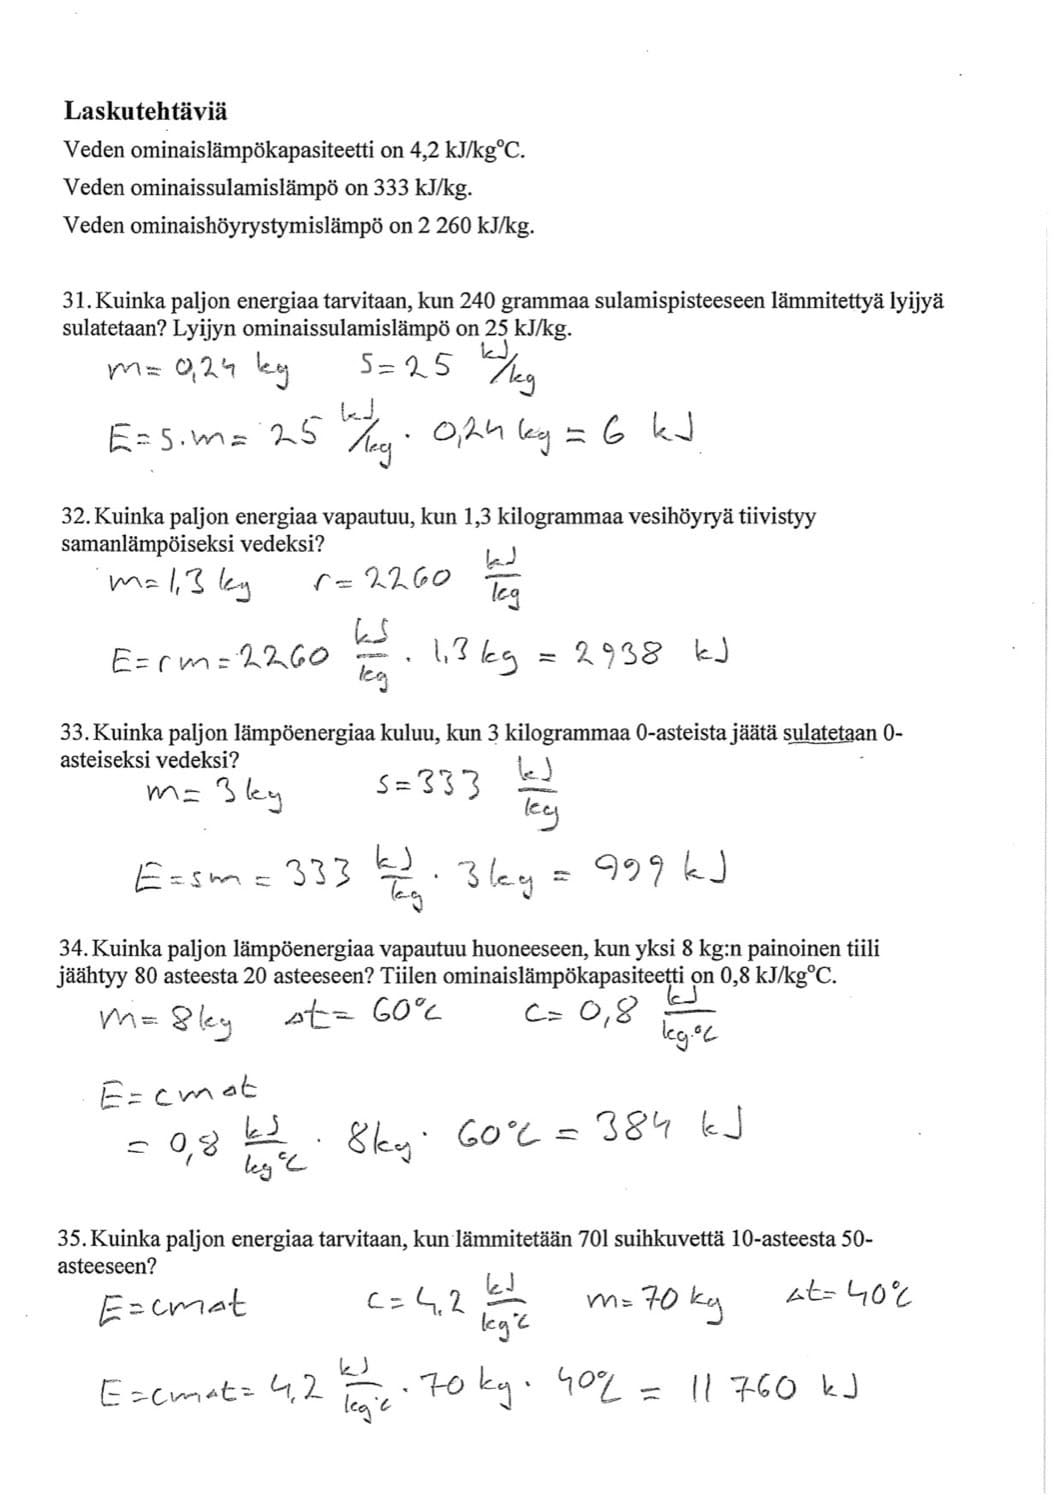 Laskutehtäviä
Veden ominaislämpökapasiteetti on 4,2 kJ/kg°C.
Veden ominaissulamislämpö on 333 kJ/kg.
Veden ominaishöyrystymislämpö on 2 260 kJ/kg.
31. Kuinka paljon energiaa tarvitaan, kun 240 grammaa sulamispisteeseen lämmitettyä lyijyä
sulatetaan? Lyijyn ominaissulamislämpö on 25 kJ/kg.
m = 0,24 kg S = 25 kJ/kg
E = s·m = 25 kJ/kg · 0,24 kg = 6 kJ
32. Kuinka paljon energiaa vapautuu, kun 1,3 kilogrammaa vesihöyryä tiivistyy
samanlämpöiseksi vedeksi?
m = 1,3 kg r = 2260 kJ/kg
E = rm = 2260 kJ/kg · 1,3 kg = 2938 kJ
33. Kuinka paljon lämpöenergiaa kuluu, kun 3 kilogrammaa 0-asteista jäätä sulatetaan 0-
asteiseksi vedeksi?
m = 3 kg s = 333 kJ/kg
E = sm = 333 kJ/kg · 3 kg = 999 kJ
34. Kuinka paljon lämpöenergiaa vapautuu huoneeseen, kun yksi 8 kg:n painoinen tiili
jäähtyy 80 asteesta 20 asteeseen? Tiilen ominaislämpökapasiteetti on 0,8 kJ/kg°C.
m = 8 kg Δt = 60°C c = 0,8 kJ/kg·°C
E = cmΔt
= 0,8 kJ/kg°C · 8 kg · 60°C = 384 kJ
35. Kuinka paljon energiaa tarvitaan, kun lämmitetään 70l suihkuvettä 10-asteesta 50-
asteeseen?
E = cmΔt c = 4,2 kJ/kg°C m = 70 kg Δt = 40°C
E = cmΔt = 4,2 kJ/kg°C · 70 kg · 40°C = 11 760 kJ